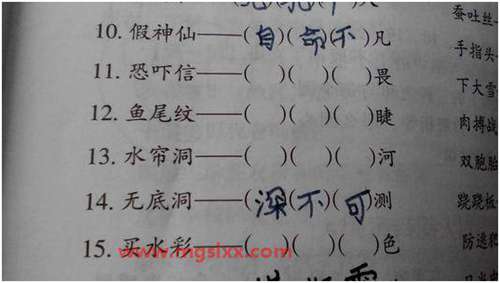 10. 假神仙——(自)(命)(不)凡
蚕吐丝
11. 恐吓信——( )( )( )畏
手指头
12. 鱼尾纹——( )( )( )睫
下大雪
13. 水帘洞——( )( )( )河
肉搏战
双胞胎
14. 无底洞——(深)(不)(可)测
跷跷板
15. 买水彩——( )( )( )色
防逃犯
www.mgslxx.com